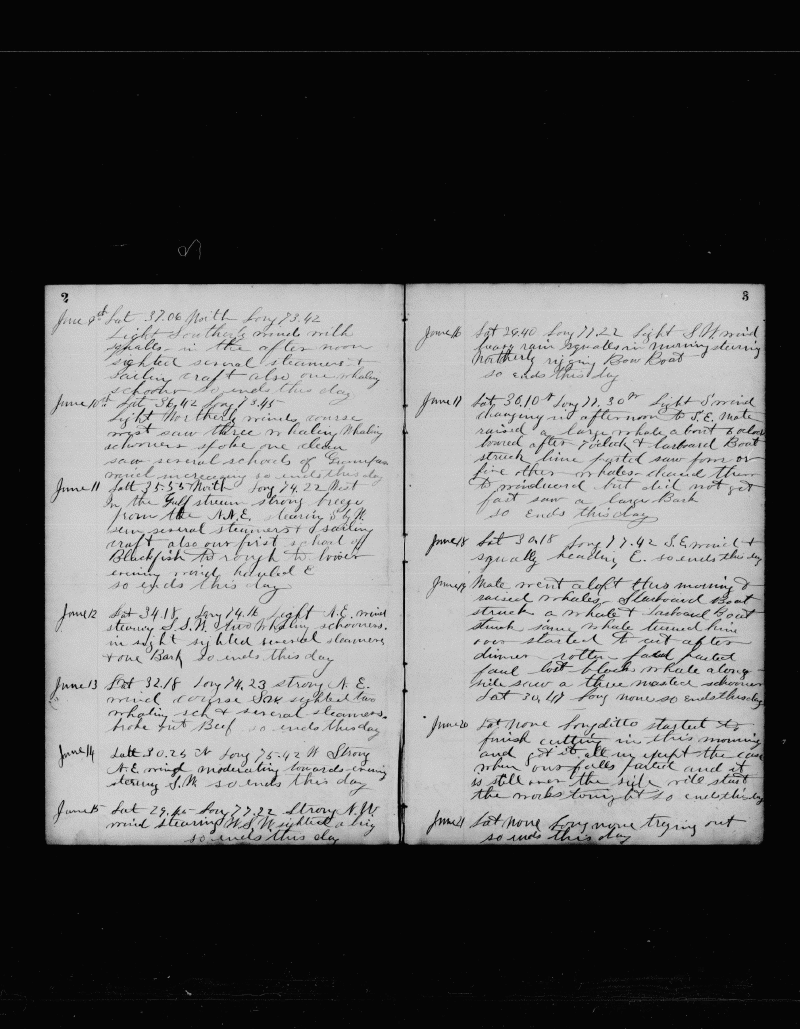 2
June 9th Lat 37.06 North Long 73.42
Light Southerly winds with
squalls in the after noon
sighted several steamers +
sailing craft also one whaling
schooner so ends this day
June 10th Lat 36,42 Long 73.45
Light Northerly wind course
west saw three whaling whaling
schooners spoke one clean
saw several schools of
wind increasing so ends this day
June 11 Latt 35.35 North Long 74.22 West
In the Gulf stream strong breeze
from the N.N.E. stearing S by W
seen several steamers & sailing
craft also our first school of
Blackfish to rough to lower
evening wind hauled E
so ends this day
June 12 Lat 34.18 Long 74.16 Light N.E. wind
stearing S.S.W. two whaling schooners.
in sight sighted several steamers
+ one Bark so ends this day
June 13 Lat 32.18 Long 74.23 strong N.E.
wind course SSW sighted two
whaling sch & several steamers.
broke out Beef so ends this day
June 14 Latt 30.25 N Long 75.42 W Strong
N.E. wind moderating towards evening
stearing S.W. so ends this day
June 15 Lat 29.45 Long 77.22 Strong N.W.
wind stearing W.S.W sighted a brig
so ends this day
3
June 16 Lat 29.40 Long 77.22 Light S.W. wind
heavy rain squales in morning stearing
Northerly riging Bow Boat
so ends this day
June 17 Lat 30,10 Long 77.30 Light S wind
changing in afternoon to S.E. Mate
raised a large whale about 6 oclock
lowered after 7 oclock & Larboard Boat
struck line parted saw four or
five other whales chased them
to windward but did not get
fast saw a large Bark
so ends this day
June 18 Lat 30.18 Long 77.42 S.E. wind +
squally heading E. so ends this day
June 19 Mate went aloft this morning &
raised whales. Starboard Boat
struck a whale & Larboard Boat
struck same whale turned him
over started to cut after
dinner rotten parted
faul lost block whale along
side saw a three masted schooner
Lat 30,47 Long none so ends this day
June 20 Lat none Long ditto started to
finish cutting in this morning
and got it all in exept the case
when our falls parted and it
is still over the side will start
the works tonight so ends this day
June 21 Lat none Long none trying out
so ends this day